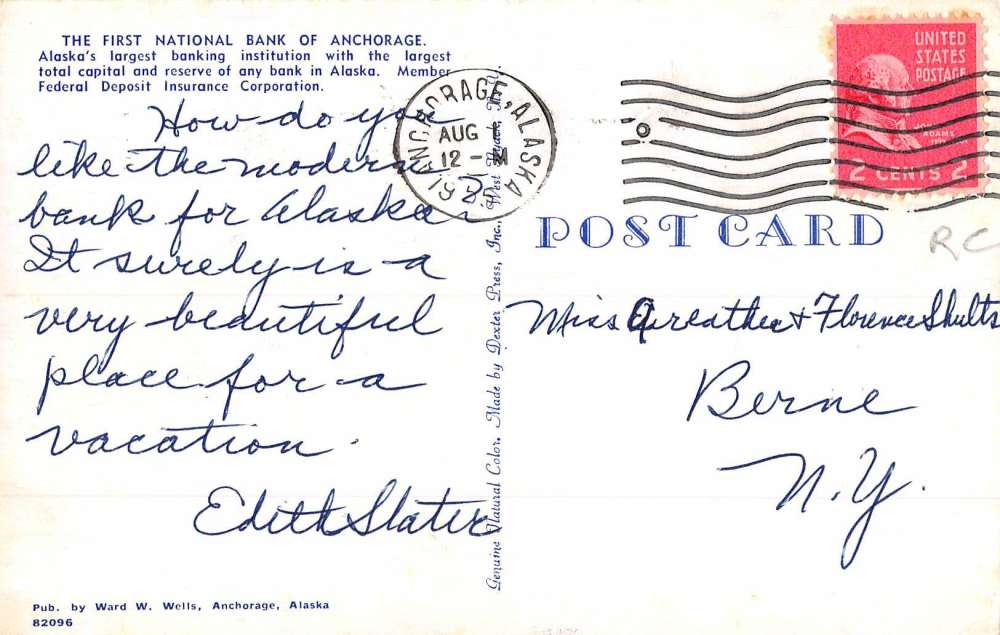 THE FIRST NATIONAL BANK OF ANCHORAGE.
Alaska's largest banking institution with the largest
total capital and reserve of any bank in Alaska. Member
Federal Deposit Insurance Corporation.
How do you
like the modern
bank for Alaska.
It surely is a
very beautiful
place for a
vacation.
Edith Slater
Pub. by Ward W. Wells, Anchorage, Alaska
82096
Genuine Natural Color. Made by Dexter Press, Inc., West Nyack, N.Y.
ANCHORAGE, ALASKA
AUG
12 - M
UNITED
STATES
POSTAGE
JOHN
ADAMS
2 CENTS 2
POST CARD
RC
Miss & Florence Shults
Berne
N.Y.